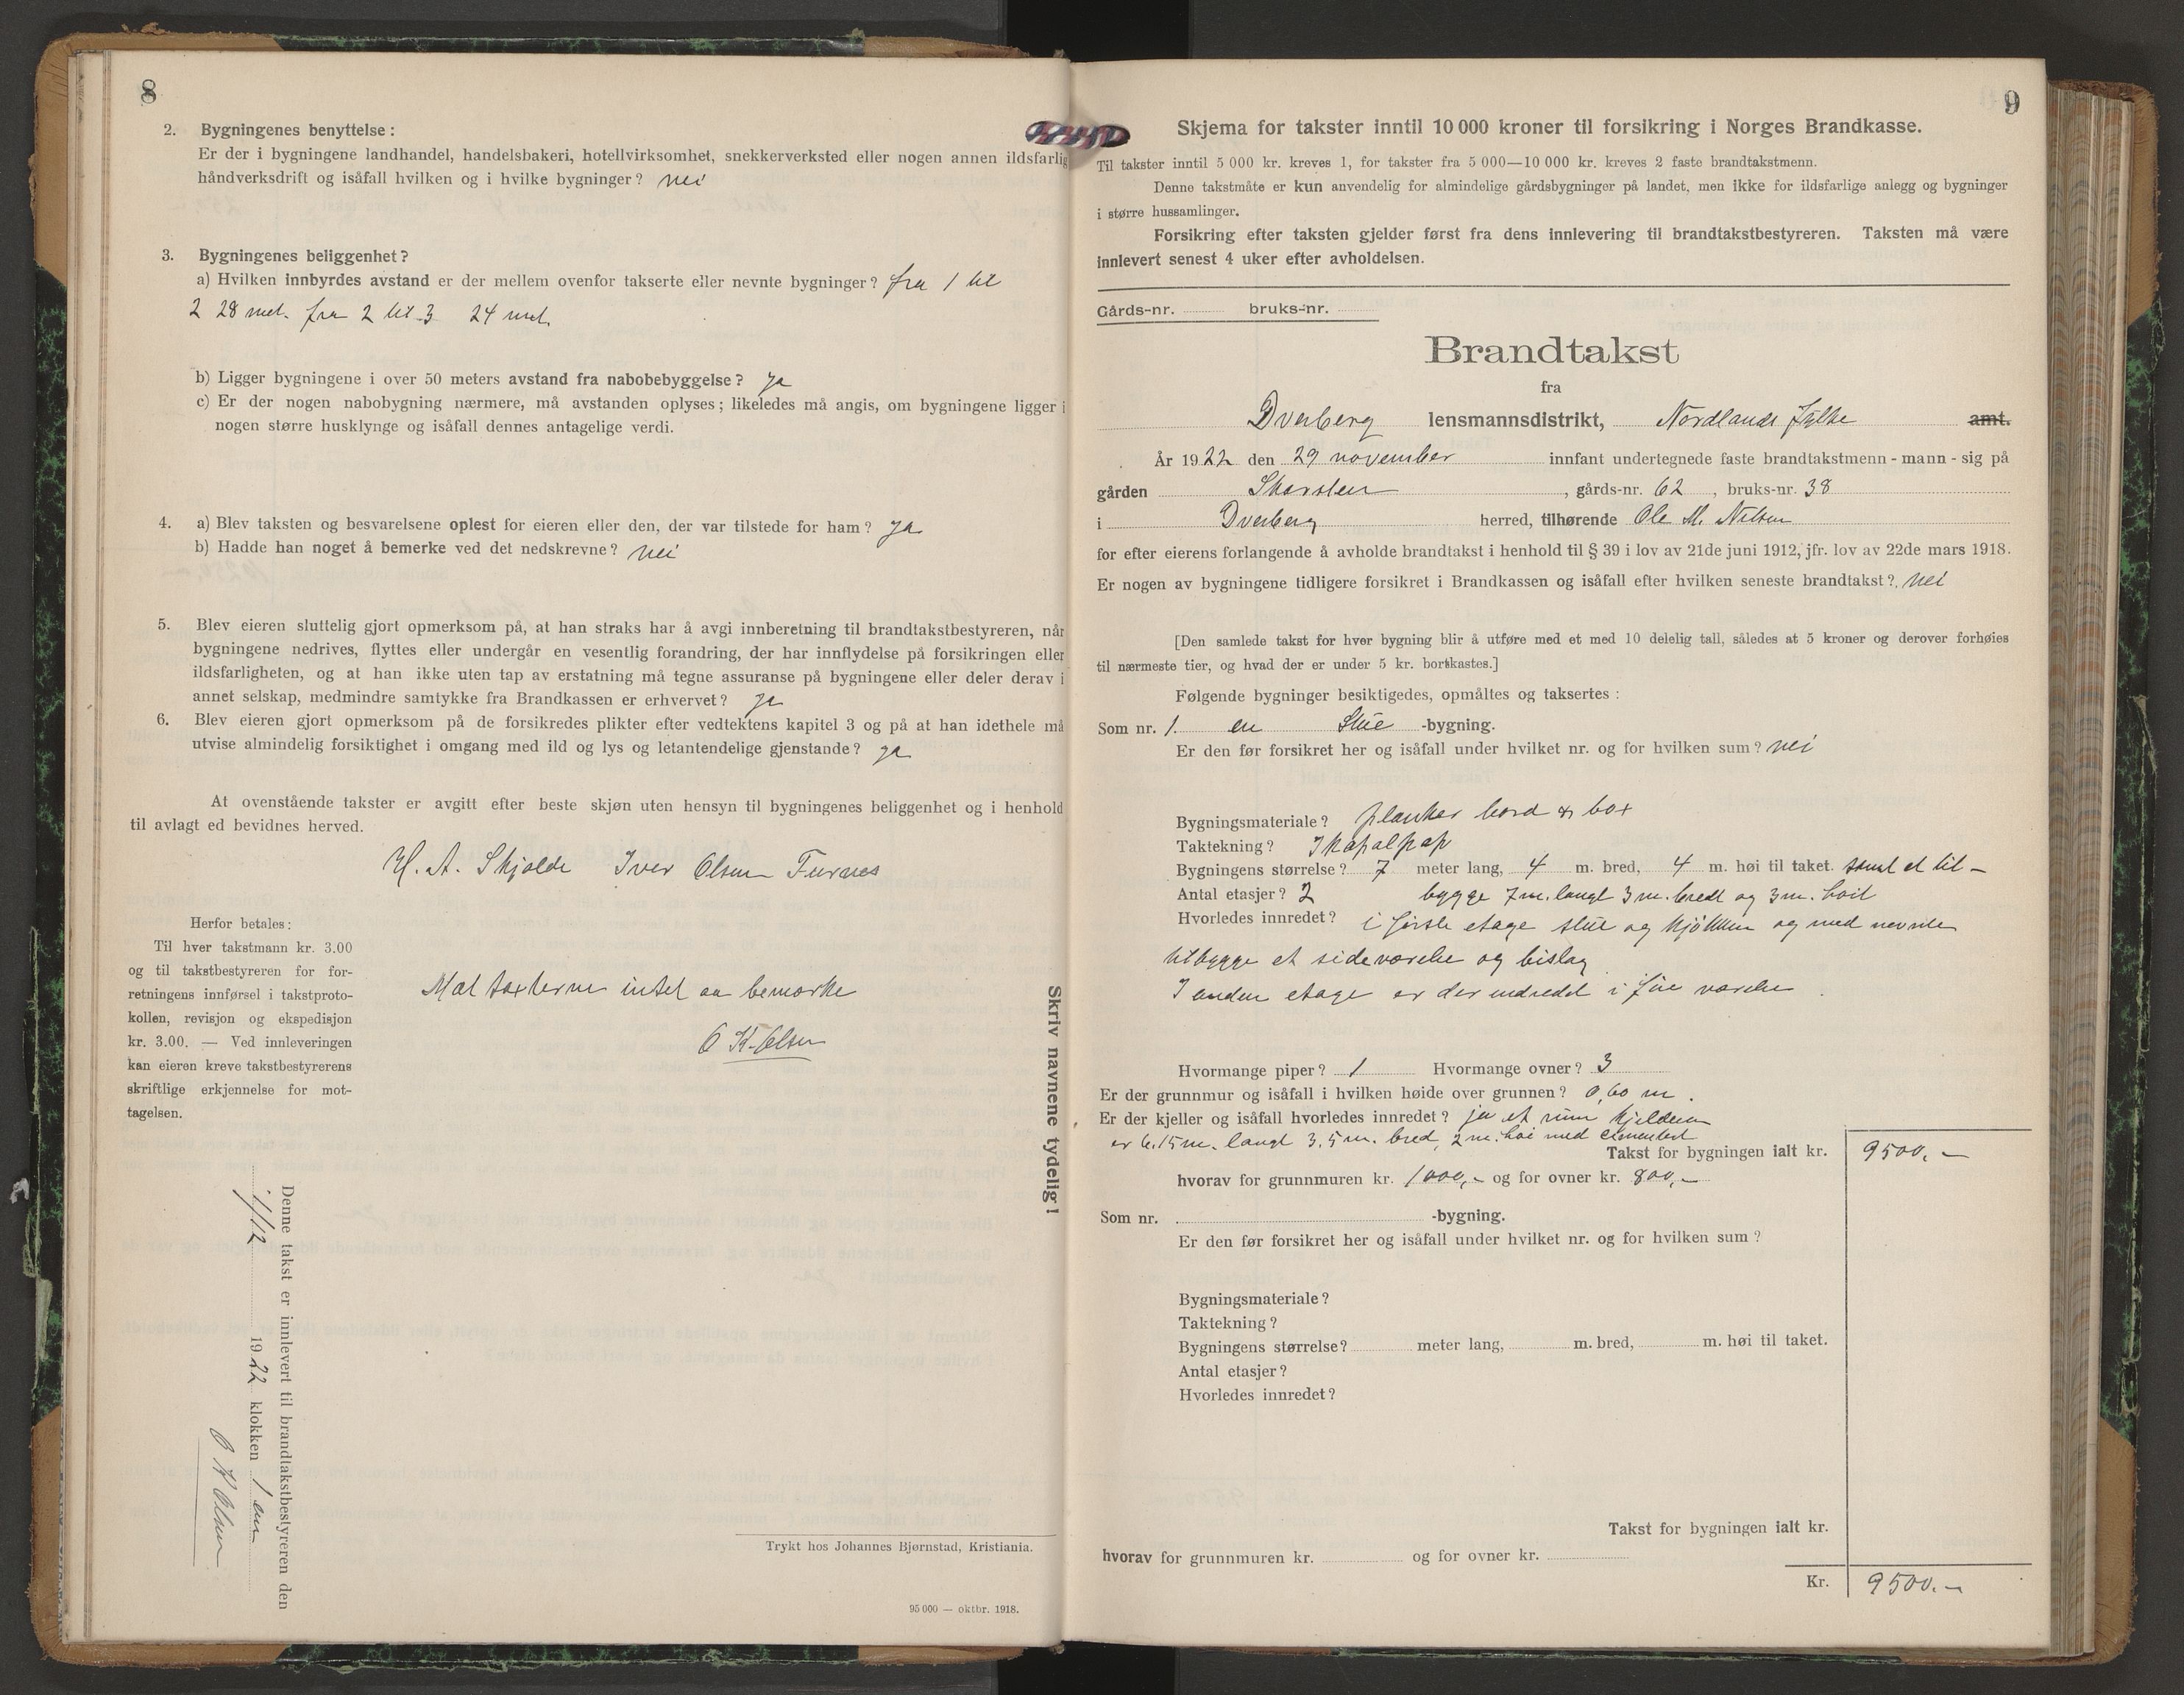 8
2. Bygningenes benyttelse :
Er der i bygningene landhandel, handelsbakeri, hotellvirksomhet, snekkerverksted eller nogen annen ildsfarlig
håndverksdrift og isåfall hvilken og i hvilke bygninger? nei
3. Bygningenes beliggenhet?
a) Hvilken innbyrdes avstand er der mellem ovenfor takserte eller nevnte bygninger? fra 1 til
2 28 met. fra 2 til 3 24 met.
b) Ligger bygningene i over 50 meters avstand fra nabobebyggelse? ja
c) Er der nogen nabobygning nærmere, må avstanden oplyses; likeledes må angis, om bygningene ligger i
nogen større husklynge og isåfall dennes antagelige verdi.
4. a) Blev taksten og besvarelsene oplest for eieren eller den, der var tilstede for ham? ja
b) Hadde han noget å bemerke ved det nedskrevne? nei
5. Blev eieren sluttelig gjort opmerksom på, at han straks har å avgi innberetning til brandtakstbestyreren, når
bygningene nedrives, flyttes eller undergår en vesentlig forandring, der har innflydelse på forsikringen eller
ildsfarligheten, og at han ikke uten tap av erstatning må tegne assuranse på bygningene eller deler derav i
annet selskap, medmindre samtykke fra Brandkassen er erhvervet? ja
6. Blev eieren gjort opmerksom på de forsikredes plikter efter vedtektens kapitel 3 og på at han idethele må
utvise almindelig forsiktighet i omgang med ild og lys og letantendelige gjenstande? ja
At ovenstående takster er avgitt efter beste skjøn uten hensyn til bygningenes beliggenhet og i henhold
til avlagt ed bevidnes herved.
H. A. Skjolde Iver Olsen Furnes
Herfor betales:
Til hver takstmann kr. 3.00
og til takstbestyreren for for-
retningens innførsel i takstproto-
kollen, revisjon og ekspedisjon
kr. 3.00. — Ved innleveringen
kan eieren kreve takstbestyrerens
skriftlige erkjennelse for mot-
tagelsen.
Mot taxterne intet aa bemærke
O K. Olsen
Skriv navnene tydelig!
Denne takst er innlevert til brandtakstbestyreren den
1/12 1922 klokken 1 em
O K Olsen
Trykt hos Johannes Bjørnstad, Kristiania.
95 000 — oktbr. 1918.
9
Skjema for takster inntil 10 000 kroner til forsikring i Norges Brandkasse.
Til takster inntil 5 000 kr. kreves 1, for takster fra 5 000—10 000 kr. kreves 2 faste brandtakstmenn.
Denne takstmåte er kun anvendelig for almindelige gårdsbygninger på landet, men ikke for ildsfarlige anlegg og bygninger
i større hussamlinger.
Forsikring efter taksten gjelder først fra dens innlevering til brandtakstbestyreren. Taksten må være
innlevert senest 4 uker efter avholdelsen.
Gårds-nr. bruks-nr.
Brandtakst
fra
Dverberg lensmannsdistrikt, Nordlands Fylke amt.
År 1922 den 29 november innfant undertegnede faste brandtakstmenn - mann - sig på
gården Skarstein, gårds-nr. 62, bruks-nr. 38
i Dverberg herred, tilhørende Ole M. Nilsen
for efter eierens forlangende å avholde brandtakst i henhold til § 39 i lov av 21de juni 1912, jfr. lov av 22de mars 1918.
Er nogen av bygningene tidligere forsikret i Brandkassen og isåfall efter hvilken seneste brandtakst? nei
[Den samlede takst for hver bygning blir å utføre med et med 10 delelig tall, således at 5 kroner og derover forhøies
til nærmeste tier, og hvad der er under 5 kr. bortkastes.]
Følgende bygninger besiktigedes, opmåltes og taksertes :
Som nr. 1. en Stue -bygning.
Er den før forsikret her og isåfall under hvilket nr. og for hvilken sum? nei
Bygningsmateriale? planker bord &
Taktekning?
Bygningens størrelse? 7 meter lang, 4 m. bred, 4 m. høi til taket. samt et til-
Antal etasjer? 2 bygge 7 m. langt 3 m. bredt og 3 m. høit
Hvorledes innredet? i første etage stue og kjøkken og med nevnte
tilbygge et sideværelse og bislag
I anden etage er der indredet i fire værelse.
Hvormange piper? 1 Hvormange ovner? 3
Er der grunnmur og isåfall i hvilken høide over grunnen? 0,60 m.
Er der kjeller og isåfall hvorledes innredet? ja et rum kjelderen
er 6.15 m. langt 3.5 m. bred, 2 m. høi med
Takst for bygningen ialt kr. 9500.—
hvorav for grunnmuren kr. 1000,- og for ovner kr. 800,-
Som nr. -bygning.
Er den før forsikret her og isåfall under hvilket nr. og for hvilken sum?
Bygningsmateriale?
Taktekning?
Bygningens størrelse? meter lang, m. bred, m. høi til taket.
Antal etasjer?
Hvorledes innredet?
Takst for bygningen ialt kr.
hvorav for grunnmuren kr. og for ovner kr.
Kr. 9500.—